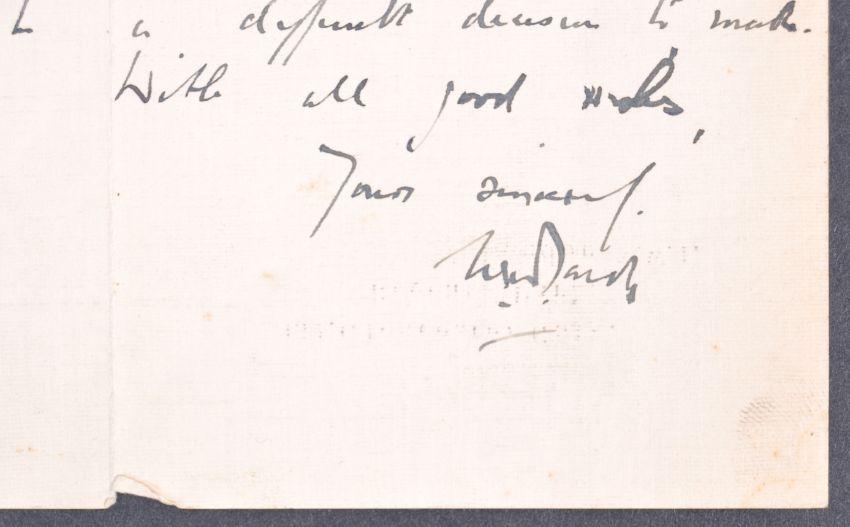 a difficult decision to make.
With all good wishes,
Yours sincerely.